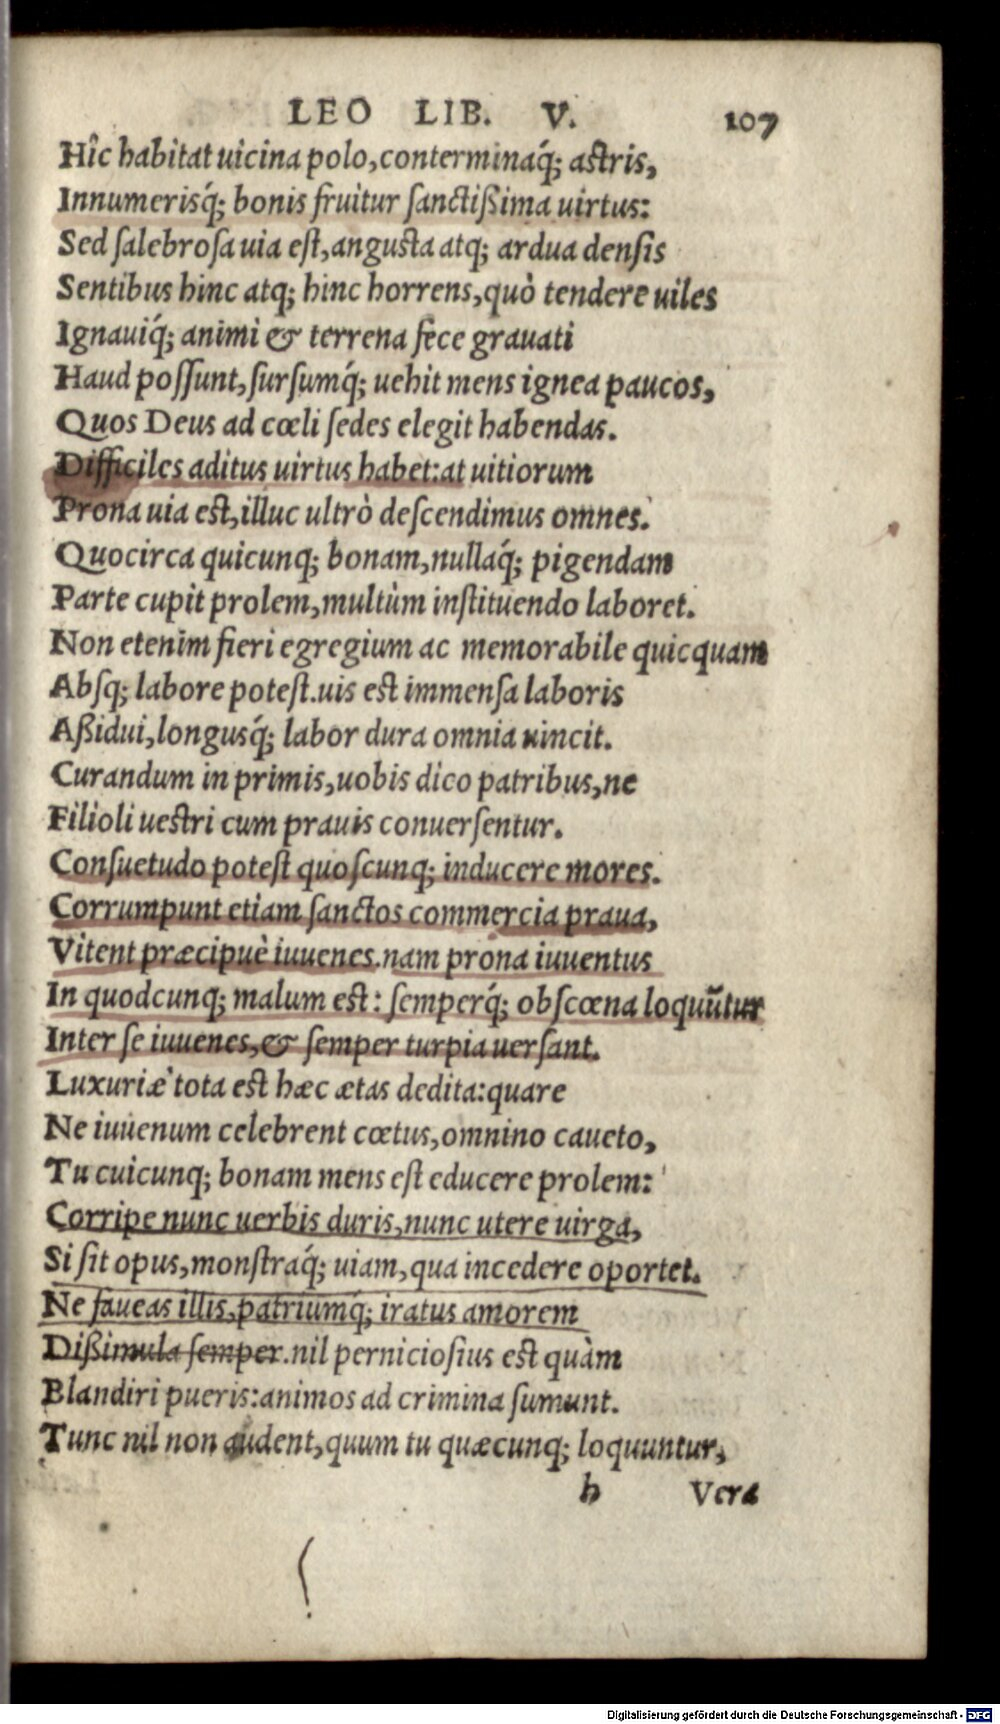 LEO LIB. V. 107
Hîc habitat uicina polo, conterminaq́; astris,
Innumerisq́; bonis fruitur sanctißima uirtus:
Sed salebrosa uia est, angusta atq; ardua densis
Sentibus hinc atq; hinc horrens, quò tendere uiles
Ignauiq́; animi & terrena fece grauati
Haud possunt, sursumq́; uehit mens ignea paucos,
Quos Deus ad cœli sedes elegit habendas.
Difficiles aditus uirtus habet: at uitiorum
Prona uia est, illuc ultrò descendimus omnes.
Quocirca quicunq; bonam, nullaq́; pigendam
Parte cupit prolem, multùm instituendo laboret.
Non etenim fieri egregium ac memorabile quicquam
Absq; labore potest. uis est immensa laboris
Aßidui, longusq́; labor dura omnia uincit.
Curandum in primis, uobis dico patribus, ne
Filioli uestri cum prauis conuersentur.
Consuetudo potest quoscunq; inducere mores.
Corrumpunt etiam sanctos commercia praua,
Vitent præcipuè iuuenes. nam prona iuuentus
In quodcunq; malum est: semperq́; obscœna loquũtur
Inter se iuuenes, & semper turpia uersant.
Luxuriæ tota est hæc ætas dedita: quare
Ne iuuenum celebrent cœtus, omnino caueto,
Tu cuicunq; bonam mens est educere prolem:
Corripe nunc uerbis duris, nunc utere uirga,
Si sit opus, monstraq́; uiam, qua incedere oportet.
Ne faueas illis, patriumq́; iratus amorem
Dißimula semper. nil perniciosius est quàm
Blandiri pueris: animos ad crimina sumunt.
Tunc nil non audent, quum tu quæcunq; loquuntur,
h Vera
Digitalisierung gefördert durch die Deutsche Forschungsgemeinschaft - DFG